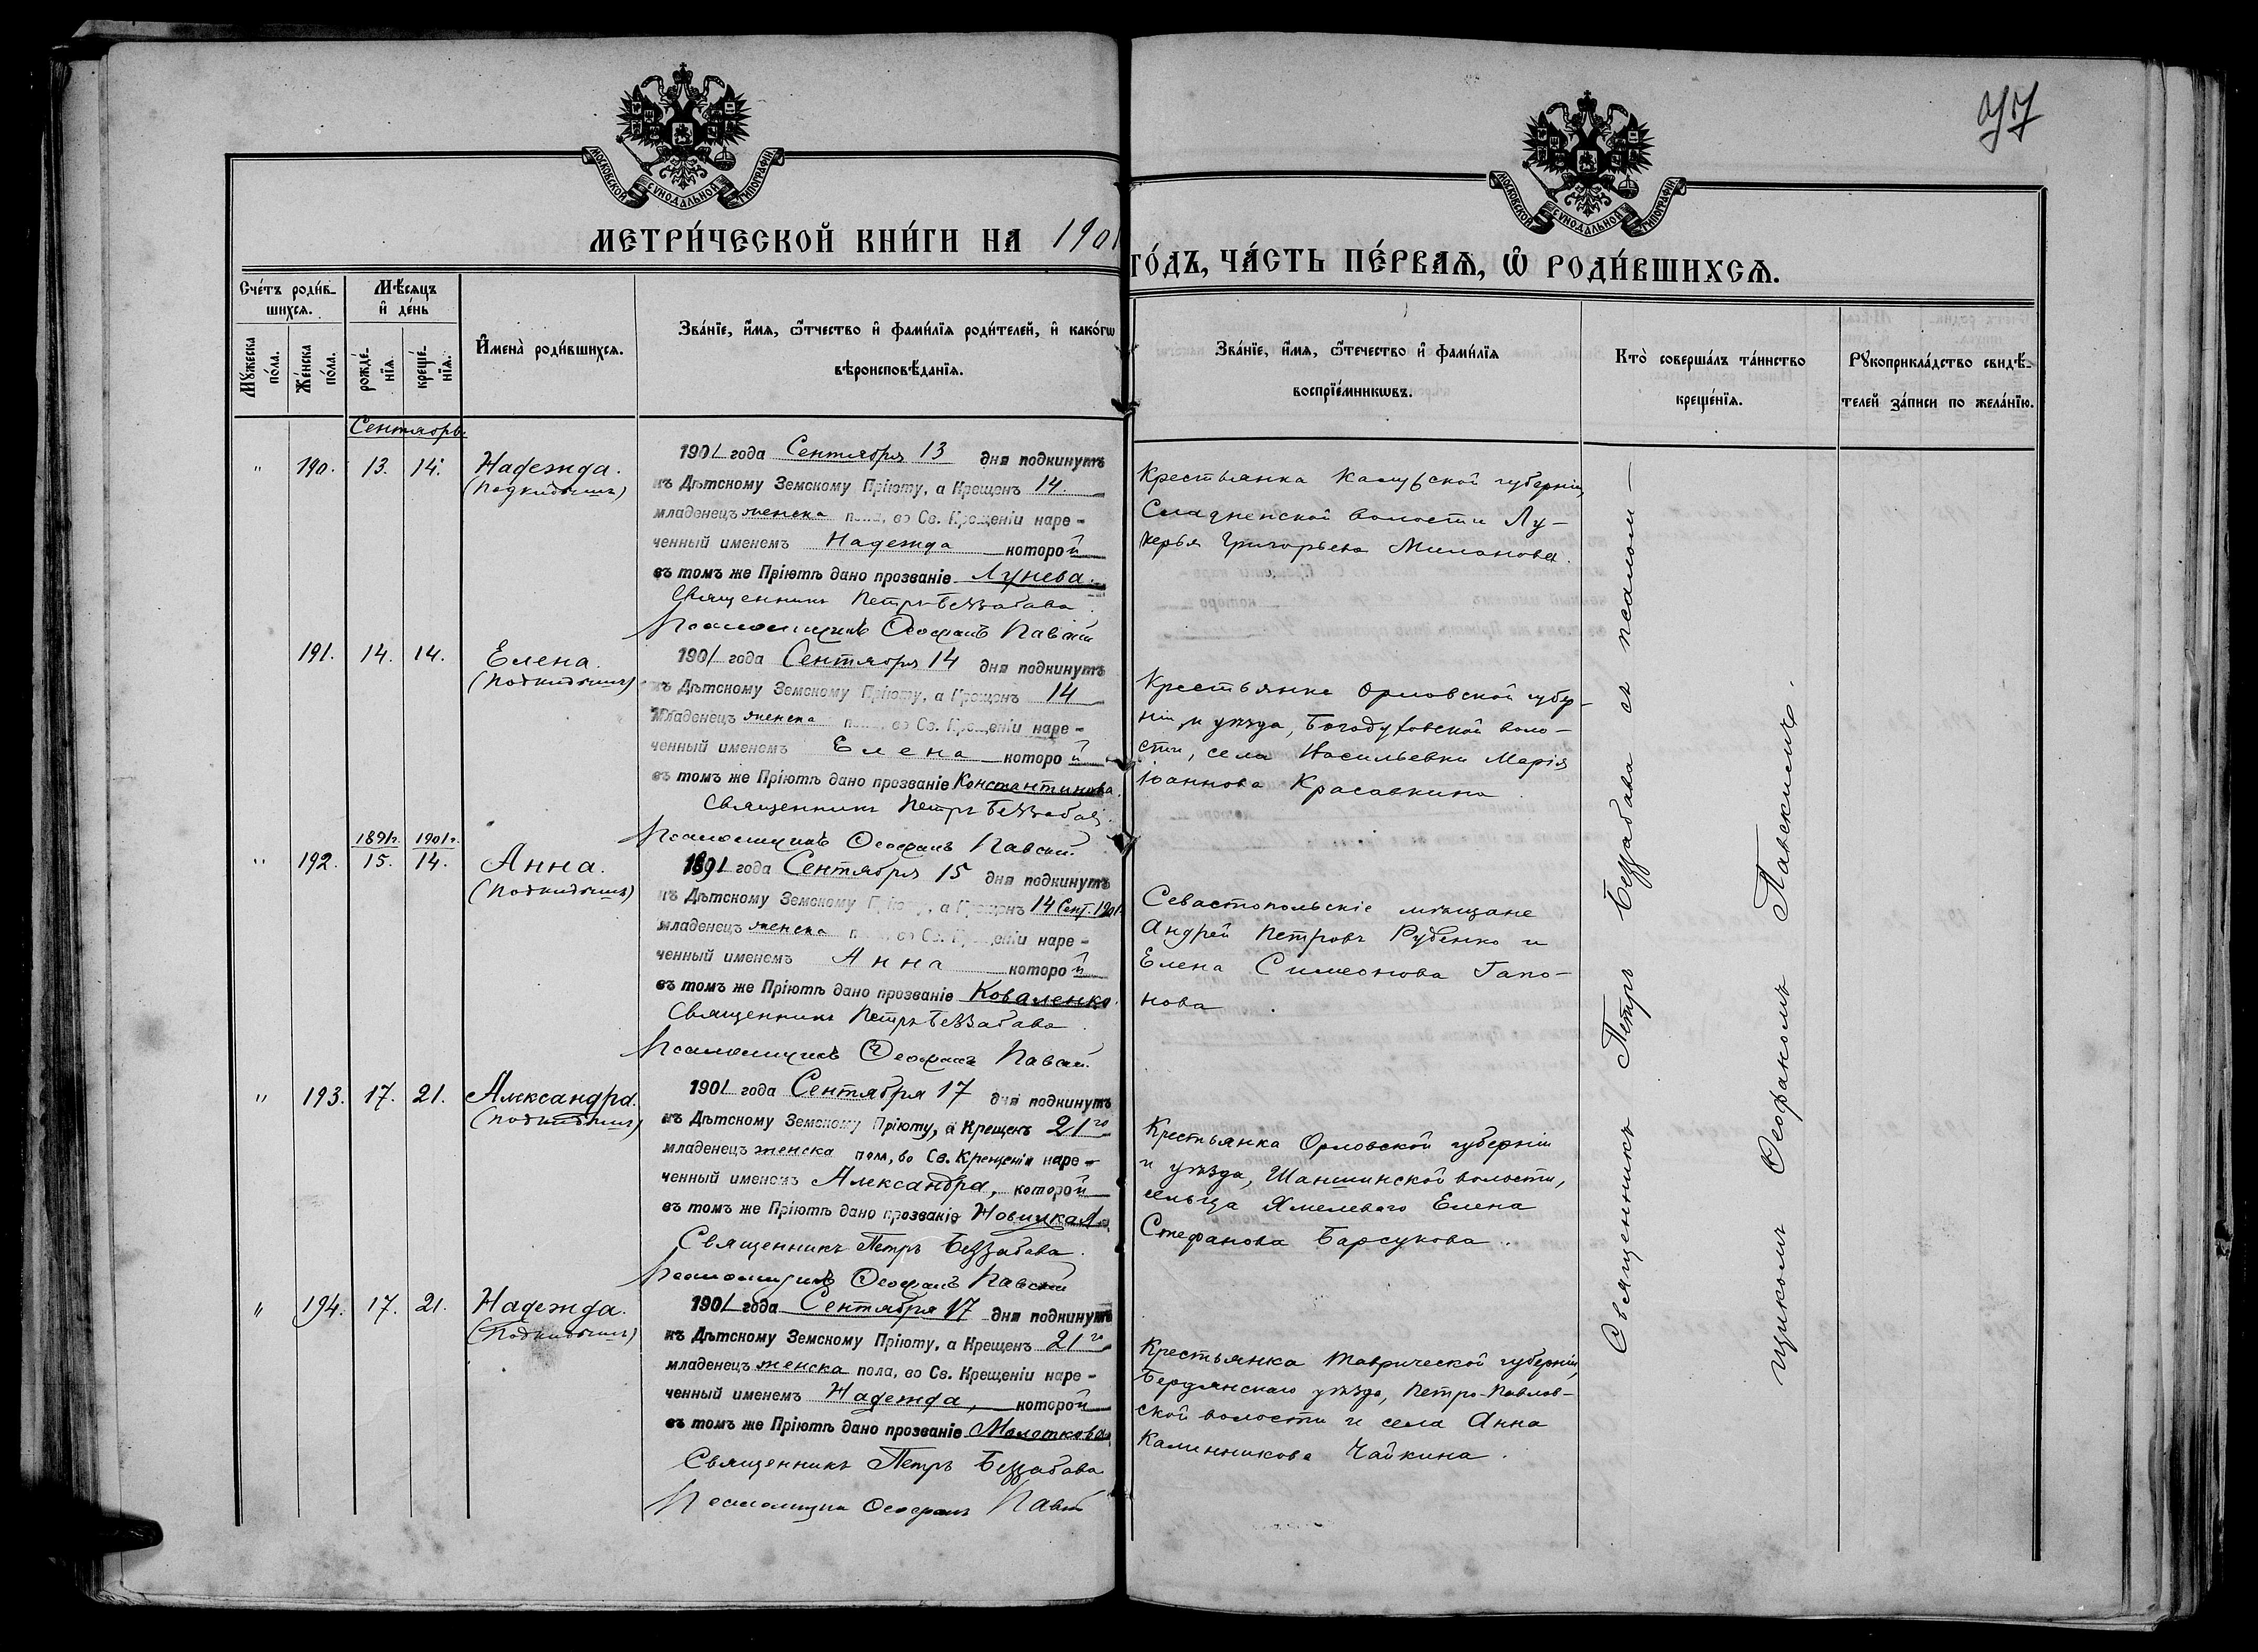 97
МОСКОВСКОЙ СѴНОДАЛЬНОЙ ТИПОГРАФІИ
МОСКОВСКОЙ СѴНОДАЛЬНОЙ ТИПОГРАФІИ
МЕТРИ́ЧЕСКОЙ КНИ́ГИ НА 1901
ГО́ДЪ, ЧА́СТЬ ПЕ́РВАѦ, Ѿ РОДИ́ВШИХСѦ.
Сче́тъ роди́в-
шихсѧ.
Мꙋ́жеска по́ла.
Же́нска по́ла.
Мѣ́сяцъ
и҆ де́нь
рожде́нїѧ.
креще́нїѧ.
И҆мена̀ роди́вшихсѧ.
Зва́нїе, и҆́мѧ, ѻ҆́тчество и҆ фами́лїѧ роди́телей, и҆ како́гѡ
вѣроисповѣ́данїѧ.
Зва́нїе, и҆́мѧ, ѻ҆те́чество и҆ фами́лїѧ
воспрїе́мникѡвъ.
Кто̀ соверша́лъ та́инство
креще́нїѧ.
Рꙋкоприкла́дство свидѣ́-
телей за́писи по жела́нїю.
Сентябрь.
" 190. 13. 14. Надежда.
(Подкидышъ)
1901 года Сентября 13 дня подкинутъ
къ Дѣтскому Земскому Пріюту, а Крещенъ 14
младенецъ женска пола, во Св. Крещеніи наре-
ченный именемъ Надежда которой
въ томъ же Пріютѣ дано прозваніе Лунева.
Священникъ Петръ Беззабава
Псаломщикъ Ѳеофанъ Павскій
Крестьянка Калужской губерніи,
волости Лу-
керья Григорьева Миланова.
191. 14. 14. Елена.
(Подкидышъ)
1901 года Сентября 14 дня подкинутъ
къ Дѣтскому Земскому Пріюту, а Крещенъ 14
младенецъ женска пола, во Св. Крещеніи наре-
ченный именемъ Елена которой
въ томъ же Пріютѣ дано прозваніе Константинова.
Священникъ Петръ Беззабава
Псаломщикъ Ѳеофанъ Павскій
Крестьянка Орловской губер-
ніи и уѣзда, Богодуховской воло-
сти, села Васильевки Марія
Іоаннова Красавкина
1891г. 1901г.
" 192. 15. 14. Анна.
(Подкидышъ)
1891 года Сентября 15 дня подкинутъ
къ Дѣтскому Земскому Пріюту, а Крещенъ 14 Сент. 1901
младенецъ женска пола, во Св. Крещеніи наре-
ченный именемъ Анна которой
въ томъ же Пріютѣ дано прозваніе Коваленко.
Священникъ Петръ Беззабава.
Псаломщикъ Ѳеофанъ Павскій
Севастопольскіе мѣщане
Андрей Петровъ Рубенко и
Елена Симеонова Гапо-
нова
" 193. 17. 21. Александра.
(Подкидышъ)
1901 года Сентября 17 дня подкинутъ
къ Дѣтскому Земскому Пріюту, а Крещенъ 21го
младенецъ женска пола, во Св. Крещеніи наре-
ченный именемъ Александра, которой
въ томъ же Пріютѣ дано прозваніе Новицкая.
Священникъ Петръ Беззабава.
Псаломщикъ Ѳеофанъ Павскій
Крестьянка Орловской губерніи
и уѣзда, волости,
сельца Хмелеваго Елена
Стефанова Барсукова.
" 194. 17. 21. Надежда.
(Подкидышъ)
1901 года Сентября 17 дня подкинутъ
къ Дѣтскому Земскому Пріюту, а Крещенъ 21го
младенецъ женска пола, во Св. Крещеніи наре-
ченный именемъ Надежда, которой
въ томъ же Пріютѣ дано прозваніе Молоткова.
Священникъ Петръ Беззабава
Псаломщикъ Ѳеофанъ Павскій
Крестьянка Таврической губерніи,
Бердянскаго уѣзда, Петро-Павлов-
ской волости и села Анна
Калинникова Чайкина.
Священникъ Петръ Беззабава съ псалом-
щикомъ Ѳеофаномъ Павскимъ.